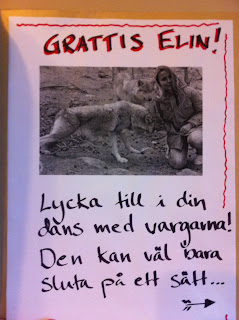 GRATTIS ELIN!
Lycka till i din
dans med vargarna!
Den kan väl bara
sluta på ett sätt...